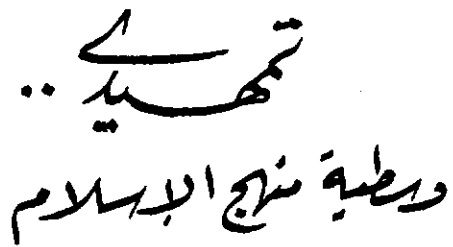 تمهيدي ..
وسطية منهج الإسلام